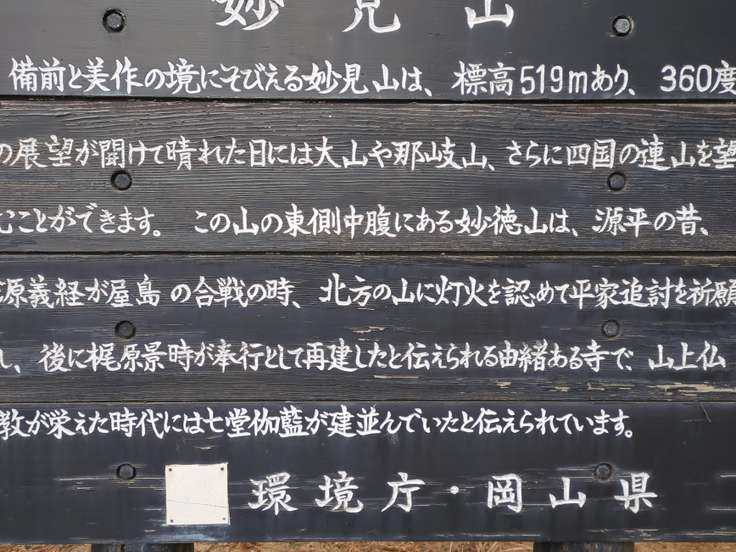 妙見山
備前と美作の境にそびえる妙見山は、標高519mあり、360度
の展望が開けて晴れた日には大山や那岐山、さらに四国の連山を望
むことができます。 この山の東側中腹にある妙徳山は、源平の昔、
源義経が屋島の合戦の時、北方の山に灯火を認めて平家追討を祈願
し、後に梶原景時が奉行として再建したと伝えられる由緒ある寺で、山上仏
教が栄えた時代には七堂伽藍が建並んでいたと伝えられています。
環境庁・岡山県